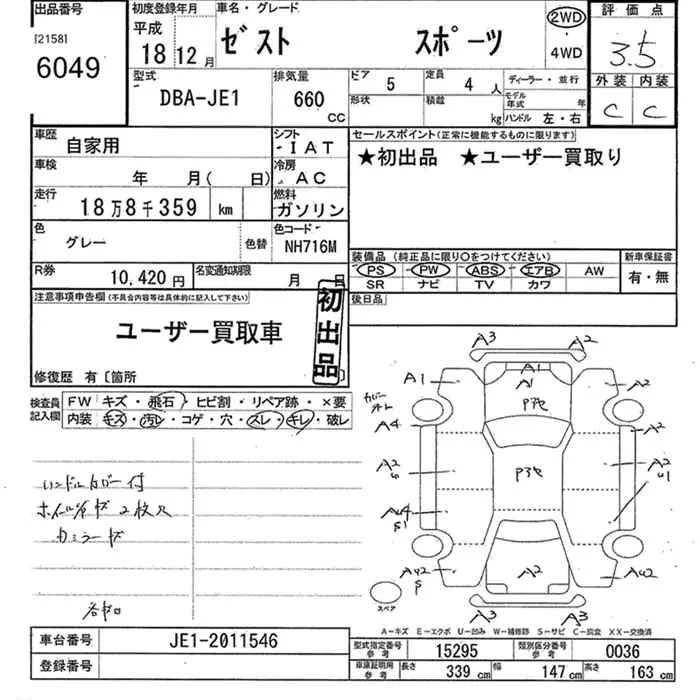 出品番号 初度登録年月 車名・グレード 2WD 評価点
[2158] 平成
6049 18年12月 ゼスト スポーツ ・ 3.5
4WD
型式 排気量 ドア 5 定員 4人 ディーラー・並行 外装 内装
DBA-JE1 660 CC 形状 積載 kg モデル年式 年 C C
ハンドル 左・右
車歴 自家用 シフト IAT セールスポイント(正常に機能するものに限ります)
車検 年 月( 日) 冷房 AC ★初出品 ★ユーザー買取り
走行 18万8千359 km 燃料 ガソリン
色 グレー 色替 色コード NH716M
装備品 (純正品に限り○をつけてください) 新車保証書
R券 10,420円 名変通知期限 月 日 PS PW ABS エアB AW 有・無
SR ナビ TV カワ
注意事項申告欄(不具合内容等は具体的に記入して下さい) 初出品 後日品
ユーザー買取車
修復歴 有〔箇所
検査員記入欄 FW キズ・飛石・ヒビ割・リペア跡・×要
内装 キズ・汚レ・コゲ・穴・スレ・キレ・破レ
A3 A2
A1 A1 A1 A2
P3
A4 A2
A2 P3 A2
U1
A2 A2
A3 A3
スペア
ハンドルカバー付
ホイルキズ2枚
カミラーキズ
A-キズ E-エクボ U-凹み W-補修跡 S-サビ C-腐食 XX-交換済
車台番号 JE1-2011546 型式指定番号 参考 15295 類別区分番号 参考 0036
登録番号 車庫証明用 参考 長さ 339 cm 幅 147 cm 高さ 163 cm